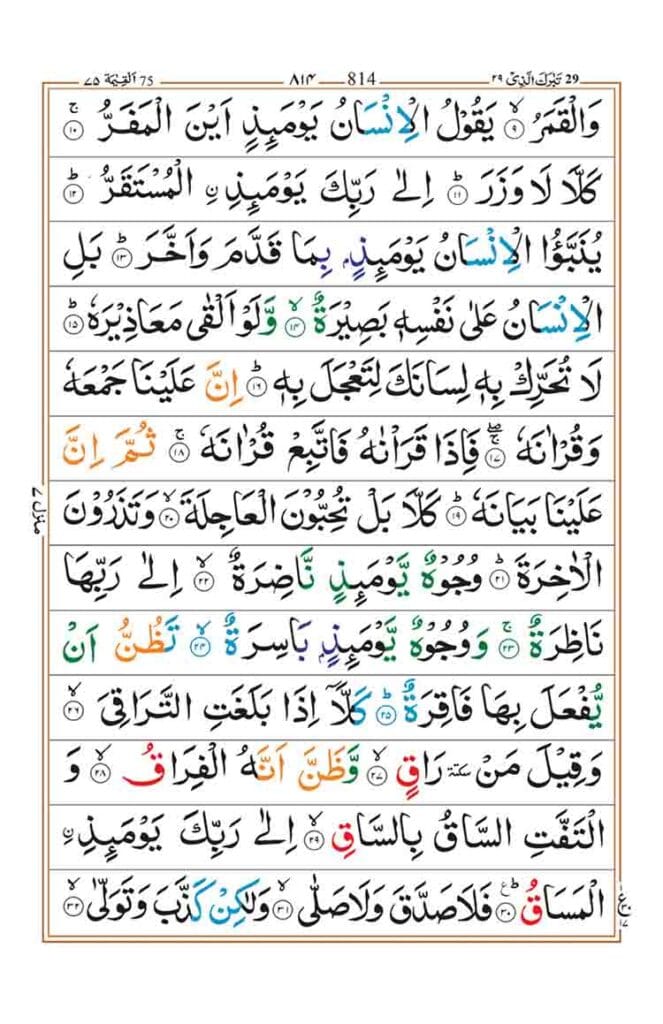 29 تَبٰرَكَ الَّذِیْ ۲۹
814 ۸۱۴
75 اَلْقِیٰمَة ۷۵
وَالْقَمَرُ ۙ﴿۹﴾ یَقُوْلُ الْاِنْسَانُ یَوْمَىِٕذٍ اَیْنَ الْمَفَرُّ ۚ﴿۱۰﴾
كَلَّا لَا وَزَرَ ؕ﴿۱۱﴾ اِلٰی رَبِّكَ یَوْمَىِٕذِ ِ۟الْمُسْتَقَرُّ ؕ﴿۱۲﴾
یُنَبَّؤُا الْاِنْسَانُ یَوْمَىِٕذٍۭ بِمَا قَدَّمَ وَاَخَّرَ ؕ﴿۱۳﴾ بَلِ
الْاِنْسَانُ عَلٰی نَفْسِهٖ بَصِیْرَةٌ ۙ﴿۱۴﴾ وَّلَوْ اَلْقٰی مَعَاذِیْرَهٗ ؕ﴿۱۵﴾
لَا تُحَرِّكْ بِهٖ لِسَانَكَ لِتَعْجَلَ بِهٖ ؕ﴿۱۶﴾ اِنَّ عَلَیْنَا جَمْعَهٗ
وَقُرْاٰنَهٗ ۚۖ﴿۱۷﴾ فَاِذَا قَرَاْنٰهُ فَاتَّبِعْ قُرْاٰنَهٗ ۚ﴿۱۸﴾ ثُمَّ اِنَّ
عَلَیْنَا بَیَانَهٗ ؕ﴿۱۹﴾ كَلَّا بَلْ تُحِبُّوْنَ الْعَاجِلَةَ ۙ﴿۲۰﴾ وَتَذَرُوْنَ
الْاٰخِرَةَ ؕ﴿۲۱﴾ وُجُوْهٌ یَّوْمَىِٕذٍ نَّاضِرَةٌ ۙ﴿۲۲﴾ اِلٰی رَبِّهَا
نَاظِرَةٌ ۚ﴿۲۳﴾ وَوُجُوْهٌ یَّوْمَىِٕذٍۭ بَاسِرَةٌ ۙ﴿۲۴﴾ تَظُنُّ اَنْ
یُّفْعَلَ بِهَا فَاقِرَةٌ ؕ﴿۲۵﴾ كَلَّاۤ اِذَا بَلَغَتِ التَّرَاقِیَ ۙ﴿۲۶﴾
وَقِیْلَ مَنْ ٚ سكتة رَاقٍ ۙ﴿۲۷﴾ وَّظَنَّ اَنَّهُ الْفِرَاقُ ۙ﴿۲۸﴾ وَ
الْتَفَّتِ السَّاقُ بِالسَّاقِ ۙ﴿۲۹﴾ اِلٰی رَبِّكَ یَوْمَىِٕذِ ِ۟
الْمَسَاقُ ؕ﴿۳۰﴾ فَلَا صَدَّقَ وَلَا صَلّٰی ۙ﴿۳۱﴾ وَلٰكِنْ كَذَّبَ وَتَوَلّٰی ۙ﴿۳۲﴾
منزل ۷